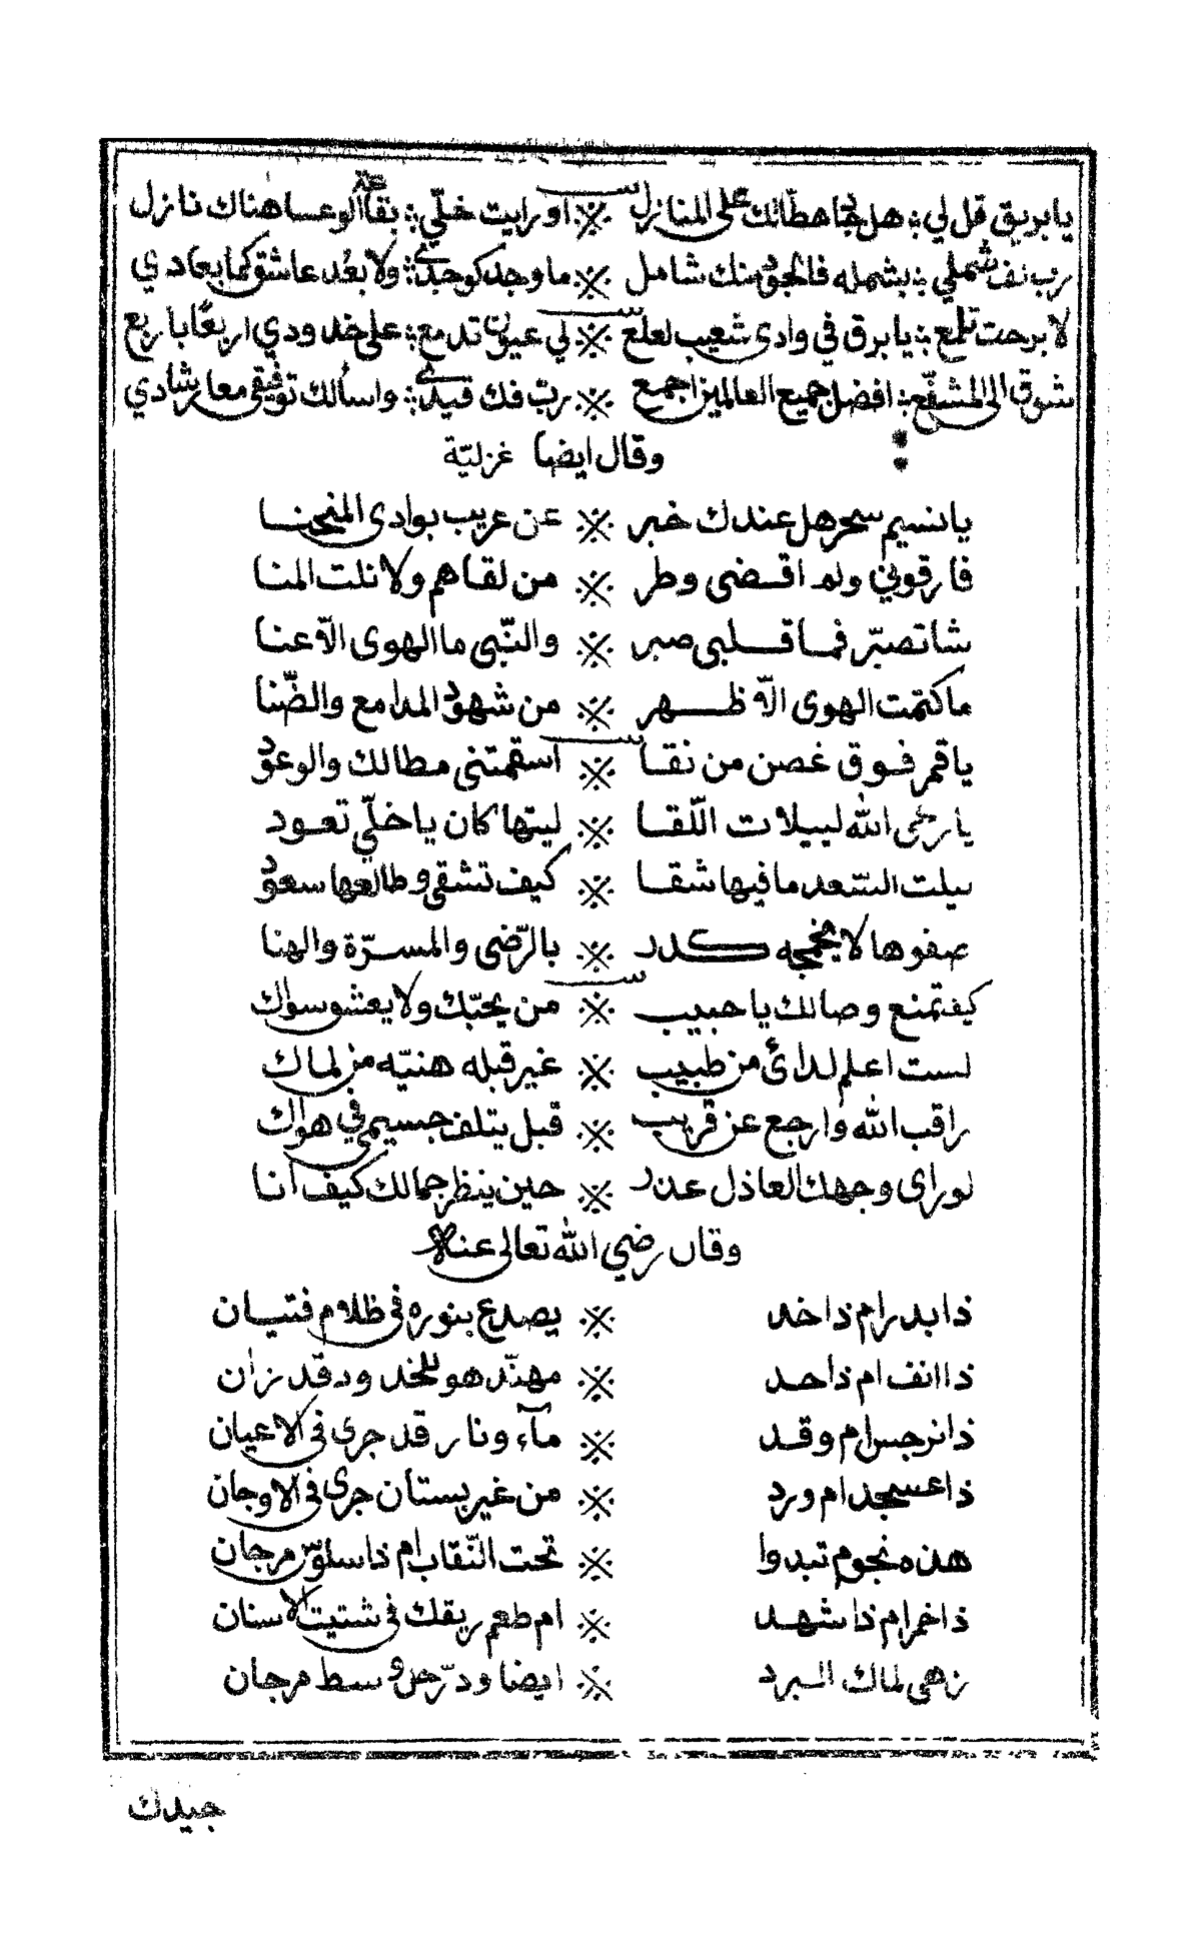 يا بريق قل لي هل حيا هطالك على المنازل ※ او رايت خلّي بقاة الوعسا هناك نازل
رب شملي بشمله فالجود منك شامل ※ ما وجد كوجدي ولا بعد عاشق كما بعادي
لا برحت تلمع يا برق في وادي شعيب لعلع ※ لي عيون تدمع على خدودي اربعًا باربع
شوق الى المشفّع افضل جميع العالمين اجمع ※ ربّ فك قيدي واسألك توفيقي معا رشادي
وقال ايضا غزليّة
يا نسيم سحر هل عندك خبر ※ عن عريب بوادى المنحنا
فارقوني ولم اقضى وطر ※ من لقاهم ولا نلت المنا
شا تصبّر فما قلبى صبر ※ والنّبى ما الهوى الّا عنا
ما كتمت الهوى الّا ظهر ※ من شهود المدامع والضّنا
يا قمر فوق غصن من نقا ※ اسقمتنى مطالك والوعود
يا رعى الله لييلات اللّقا ※ ليتها كان يا خلّي تعود
ليلت السّعد ما فيها شقا ※ كيف تشقى وطالعها سعود
صفوها لا يخمجه كدر ※ بالرّضى والمسرّة والهنا
كيف تمنع وصالك يا حبيب ※ من يحبّك ولا يعشق سواك
لست اعلم لدائ من طبيب ※ غير قبله هنيّه من لماك
راقب الله وارجع عن قريب ※ قبل يتلف جسيمي في هواك
لو راى وجهك العاذل عذر ※ حين ينظر جمالك كيف انا
وقال رضي الله تعالى عنه
ذا بدر ام ذا خد ※ يصدع بنوره فى ظلام فتيان
ذا انف ام ذا حد ※ مهنّد هو للخدود قد زان
ذا نرجس ام وقد ※ مآء ونار قد جرى فى الاعيان
ذا عسجد ام ورد ※ من غير بستان جرى فى الاوجان
هذه نجوم تبدوا ※ تحت النّقاب ام ذا سلوس مرجان
ذا خمر ام ذا شهد ※ ام طعم ريقك فى شتيت الاسنان
زهى لماك البرد ※ ايضا ودرّ حل وسط مرجان
جيدك